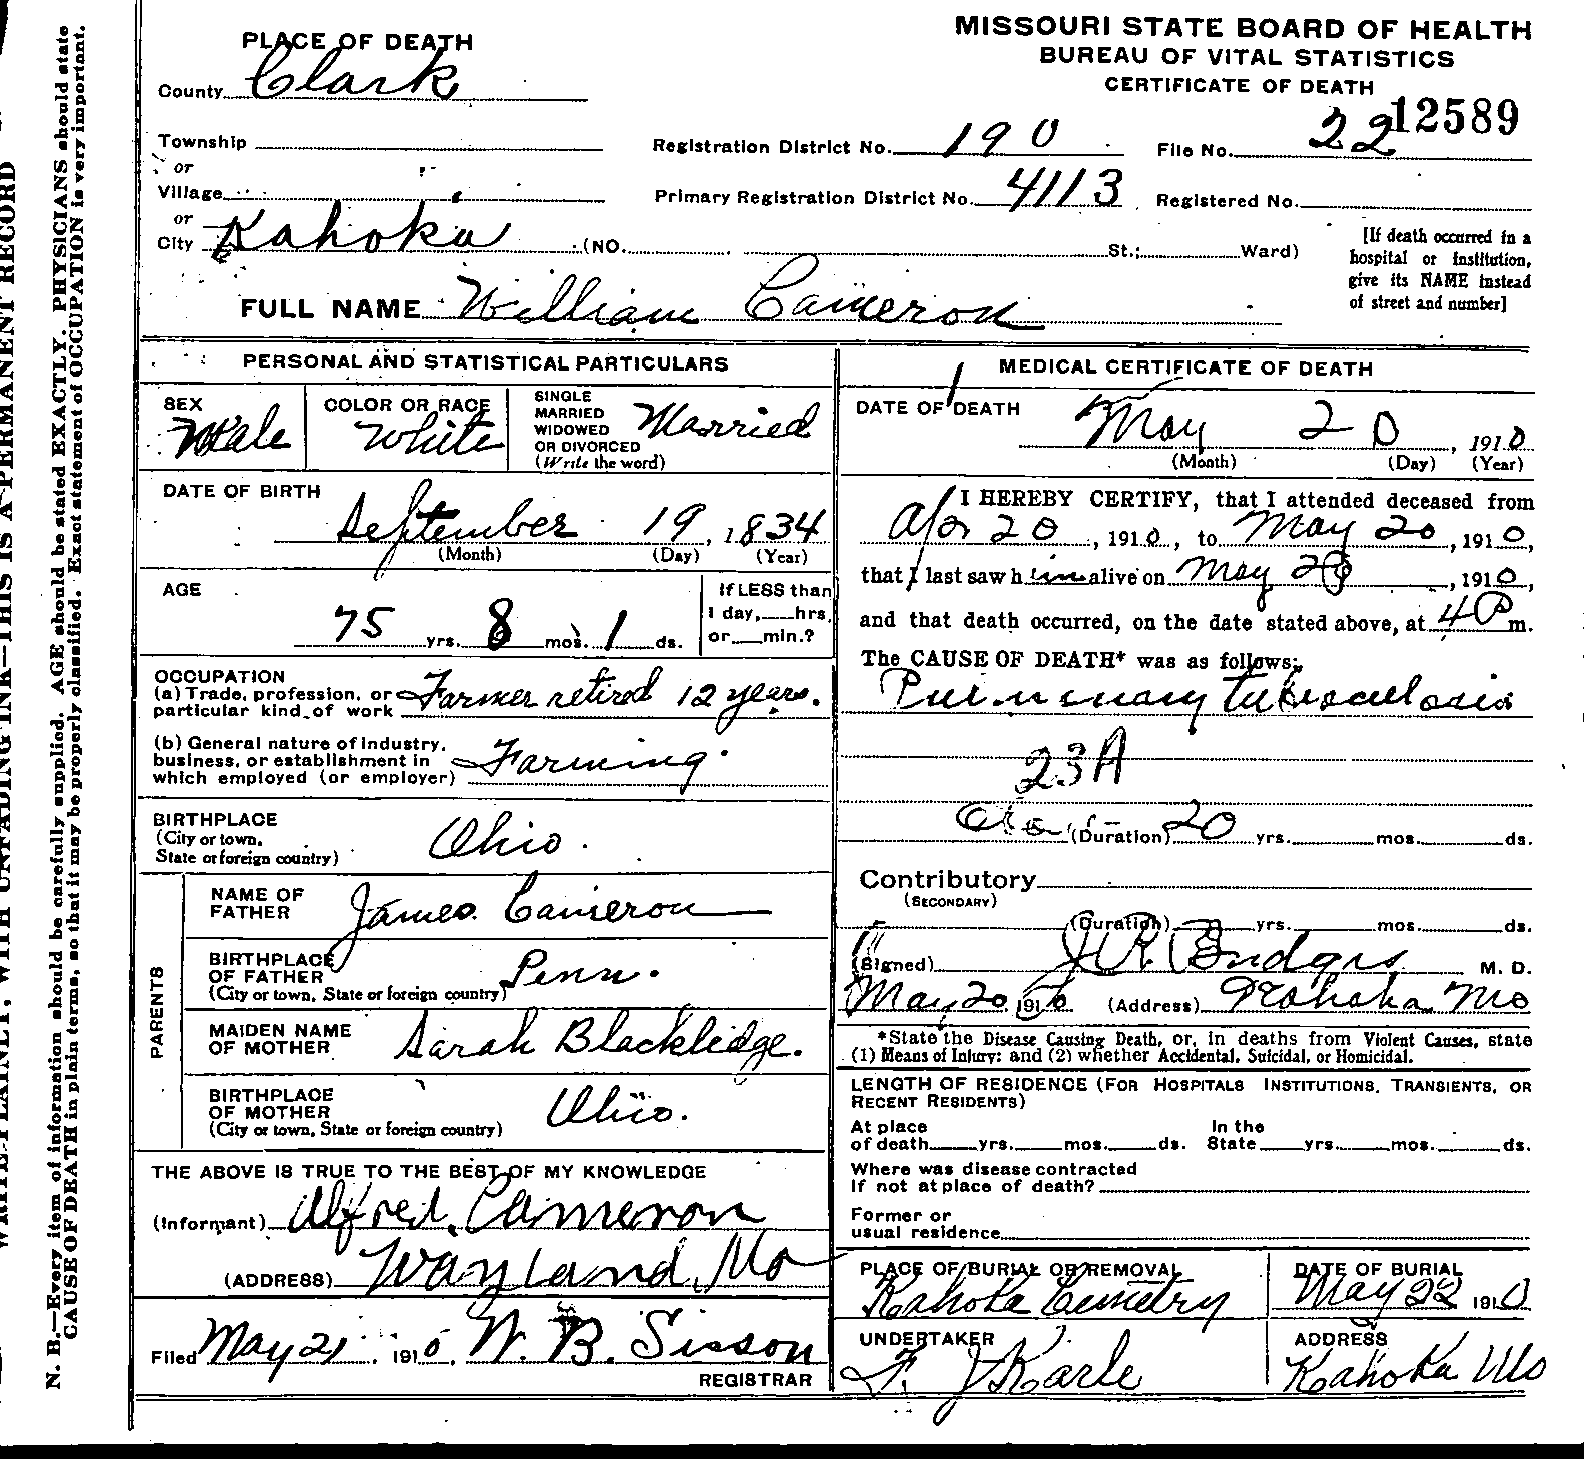 MISSOURI STATE BOARD OF HEALTH
BUREAU OF VITAL STATISTICS
CERTIFICATE OF DEATH
PLACE OF DEATH
County Clark
Township
or
Village
or
City Kahoka (NO. St.; Ward)
Registration District No. 190 File No. 22 12589
Primary Registration District No. 4113 Registered No.
[If death occurred in a
hospital or institution,
give its NAME instead
of street and number]
FULL NAME William Cameron
PERSONAL AND STATISTICAL PARTICULARS
SEX Male
COLOR OR RACE White
SINGLE
MARRIED
WIDOWED
OR DIVORCED
(Write the word)
Married
DATE OF BIRTH
September 19, 1834
(Month) (Day) (Year)
AGE
75 yrs. 8 mos. 1 ds.
If LESS than
1 day, hrs.
or min.?
OCCUPATION
(a) Trade, profession, or
particular kind of work Farmer retired 12 years.
(b) General nature of industry,
business, or establishment in
which employed (or employer) Farming
BIRTHPLACE
(City or town,
State or foreign country) Ohio.
PARENTS
NAME OF
FATHER James Cameron
BIRTHPLACE
OF FATHER
(City or town, State or foreign country) Penn.
MAIDEN NAME
OF MOTHER Sarah Blackledge.
BIRTHPLACE
OF MOTHER
(City or town, State or foreign country) Ohio.
THE ABOVE IS TRUE TO THE BEST OF MY KNOWLEDGE
(Informant) Alfred Cameron
(ADDRESS) Wayland, Mo
Filed May 21 1910, W. B. Sisson
REGISTRAR
MEDICAL CERTIFICATE OF DEATH
DATE OF DEATH
May 20, 1910
(Month) (Day) (Year)
I HEREBY CERTIFY, that I attended deceased from
Apr 20, 1910, to May 20, 1910,
that I last saw him alive on May 20, 1910,
and that death occurred, on the date stated above, at 4 P m.
The CAUSE OF DEATH* was as follows:
Pulmonary tuberculosis
23A
(Duration) 20 yrs. mos. ds.
Contributory
(SECONDARY)
(Duration) yrs. mos. ds.
(Signed) J R Bridges M. D.
May 20, 1910 (Address) Kahoka Mo
*State the Disease Causing Death, or, in deaths from Violent Causes, state
(1) Means of Injury; and (2) whether Accidental, Suicidal, or Homicidal.
LENGTH OF RESIDENCE (FOR HOSPITALS INSTITUTIONS, TRANSIENTS, OR
RECENT RESIDENTS)
At place In the
of death yrs. mos. ds. State yrs. mos. ds.
Where was disease contracted
If not at place of death?
Former or
usual residence
PLACE OF BURIAL OR REMOVAL
Kahoka Cemetry
DATE OF BURIAL
May 22 1910
UNDERTAKER
F. J Karle
ADDRESS
Kahoka Mo
WRITE PLAINLY, WITH UNFADING INK—THIS IS A PERMANENT RECORD
N. B.—Every item of information should be carefully supplied. AGE should be stated EXACTLY. PHYSICIANS should state
CAUSE OF DEATH in plain terms, so that it may be properly classified. Exact statement of OCCUPATION is very important.